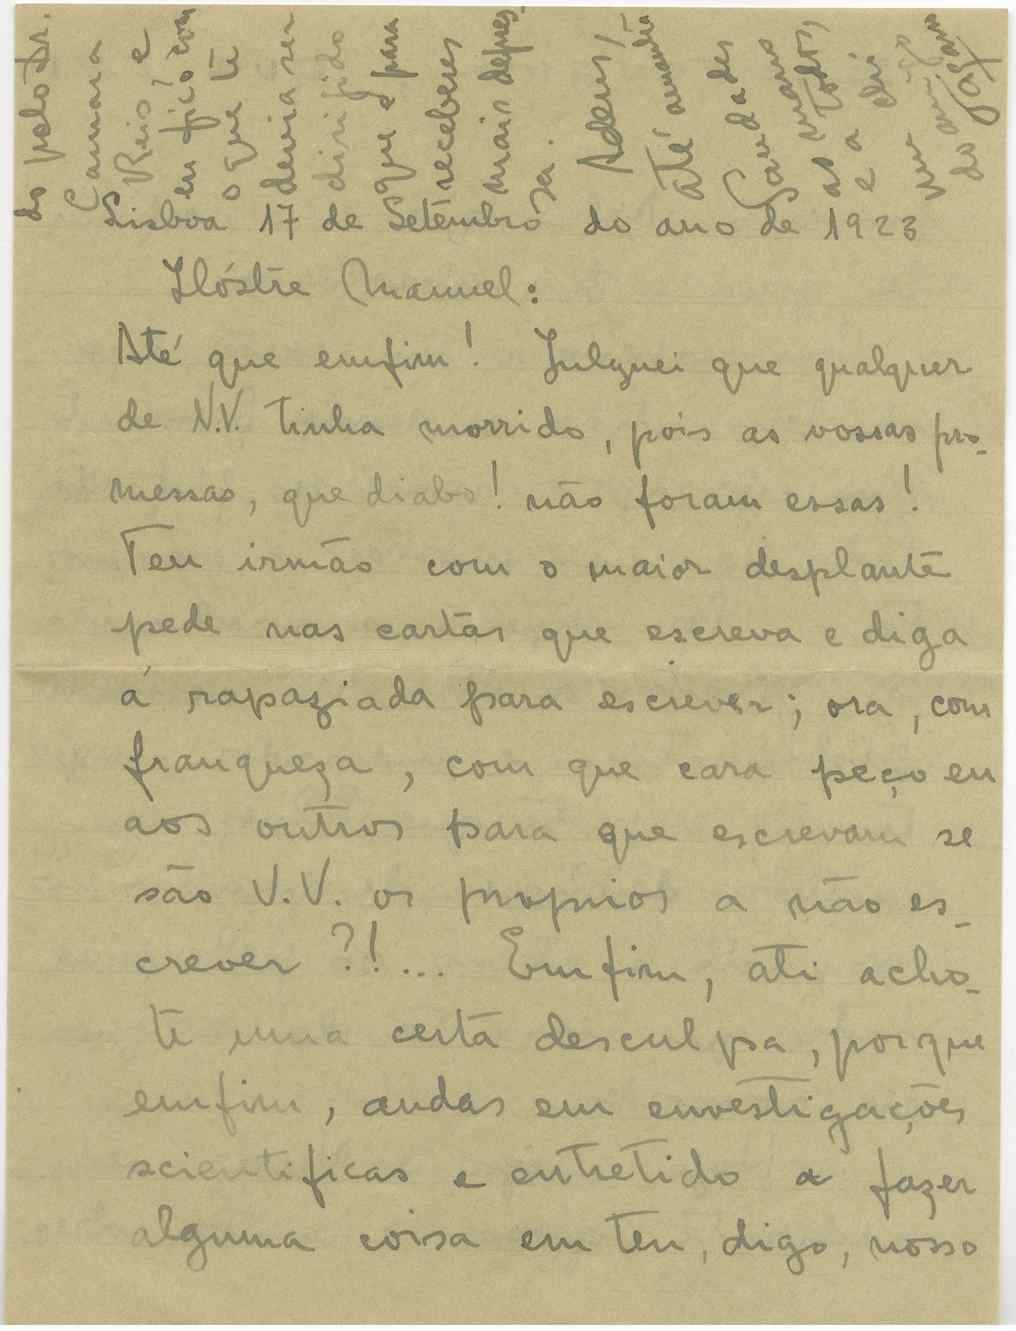 Lisboa 17 de Setembro do ano de 1923
Ilóstre Manuel:
Até que emfim! Julguei que qualquer
de N.V. tinha morrido, pois as vossas pro-
messas, que diabo! não foram essas!
Teu irmão com o maior desplante
pede nas cartas que escreva e diga
á rapaziada para escrever; ora, com
franqueza, com que cara peço eu
aos outros para que escrevam se
são V.V. os proprios a não es-
crever?!... Emfim, ati acho-
te uma certa desculpa, porque
emfim, andas em envestigações
scientificas e entretido a fazer
alguma coisa em teu, digo, nosso
do pelo Dr.
Camara
Reis e
eu fico com
o que te
devia ser
dirigido
que é para
receberes
mais depres-
sa.
Adeus,
Até amanhã
Saudades
as manas
a todos,
e a ehi
um
do amigo